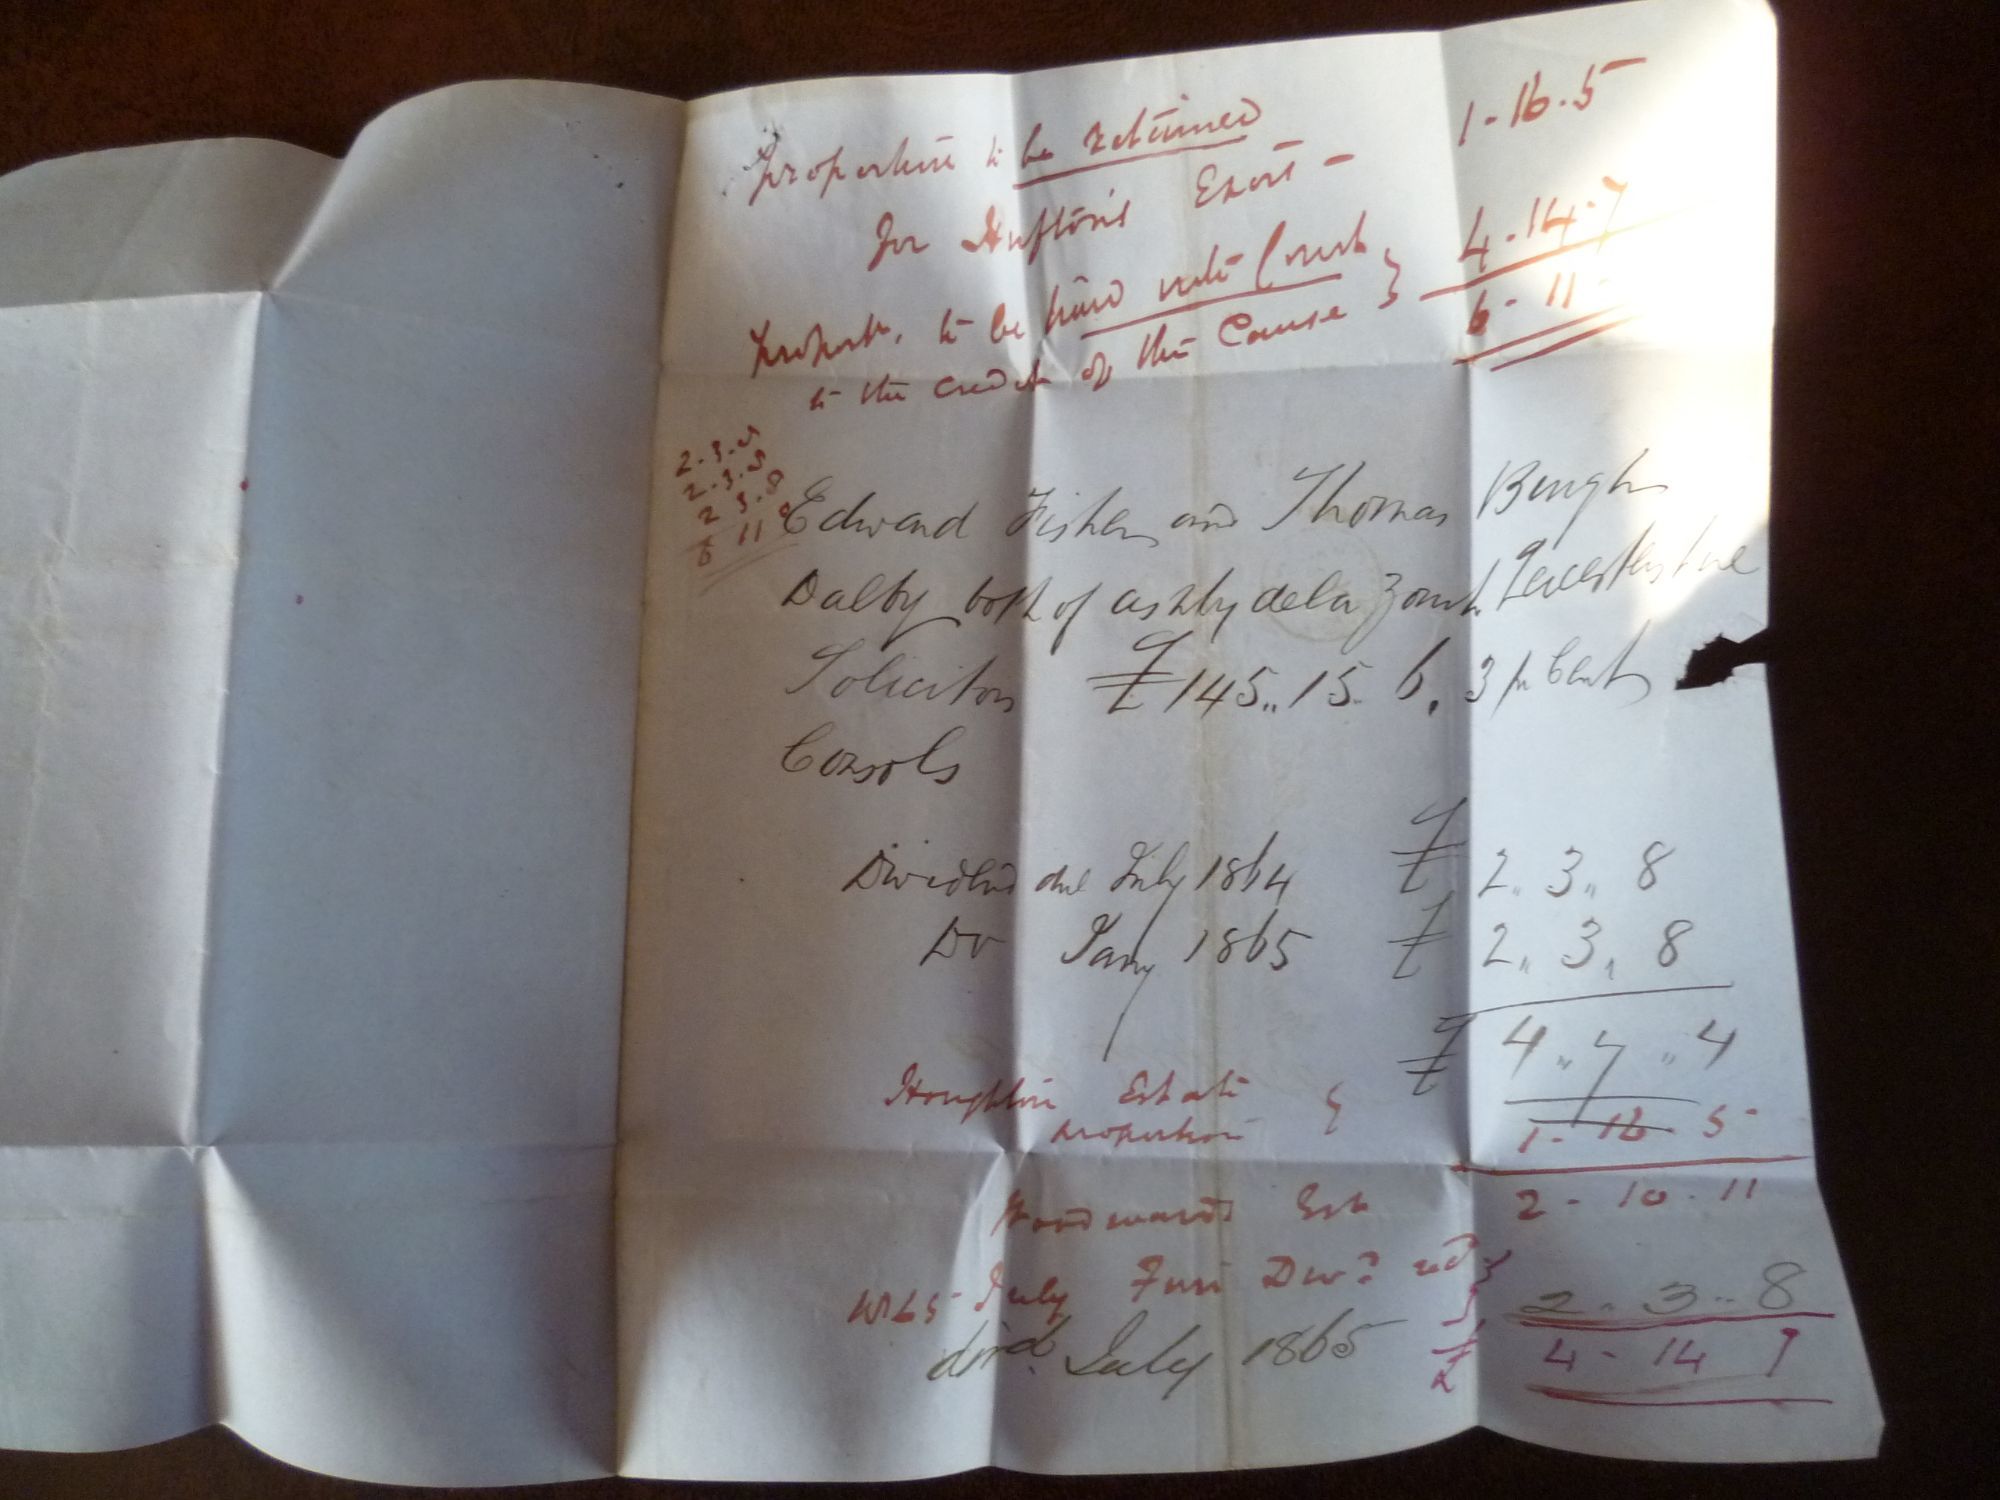 Proportion to be retained 1-16.5
for Exors -
Proport. to be paid into Court } 4-14-7
to the credit of the Cause 6-11-
2.3.8
2.3.8
2 3.8
6 11 0
Edward Fisher and Thomas Bengh
Dalby both of ashby dela Zouch Leicestershire
Solicitors £145.. 15. 6. 3 pr Cent
Consols
Dividend due July 1864 £ 2.. 3.. 8
Do Jany 1865 £ 2.. 3.. 8
£ 4.. 7.. 4
Houghton Estate }
proportion 1- 16- 5-
Woodwards Est 2-10-11
1865 July Divd recd }
divd July 1865 2.. 3.. 8
£ 4-14 7